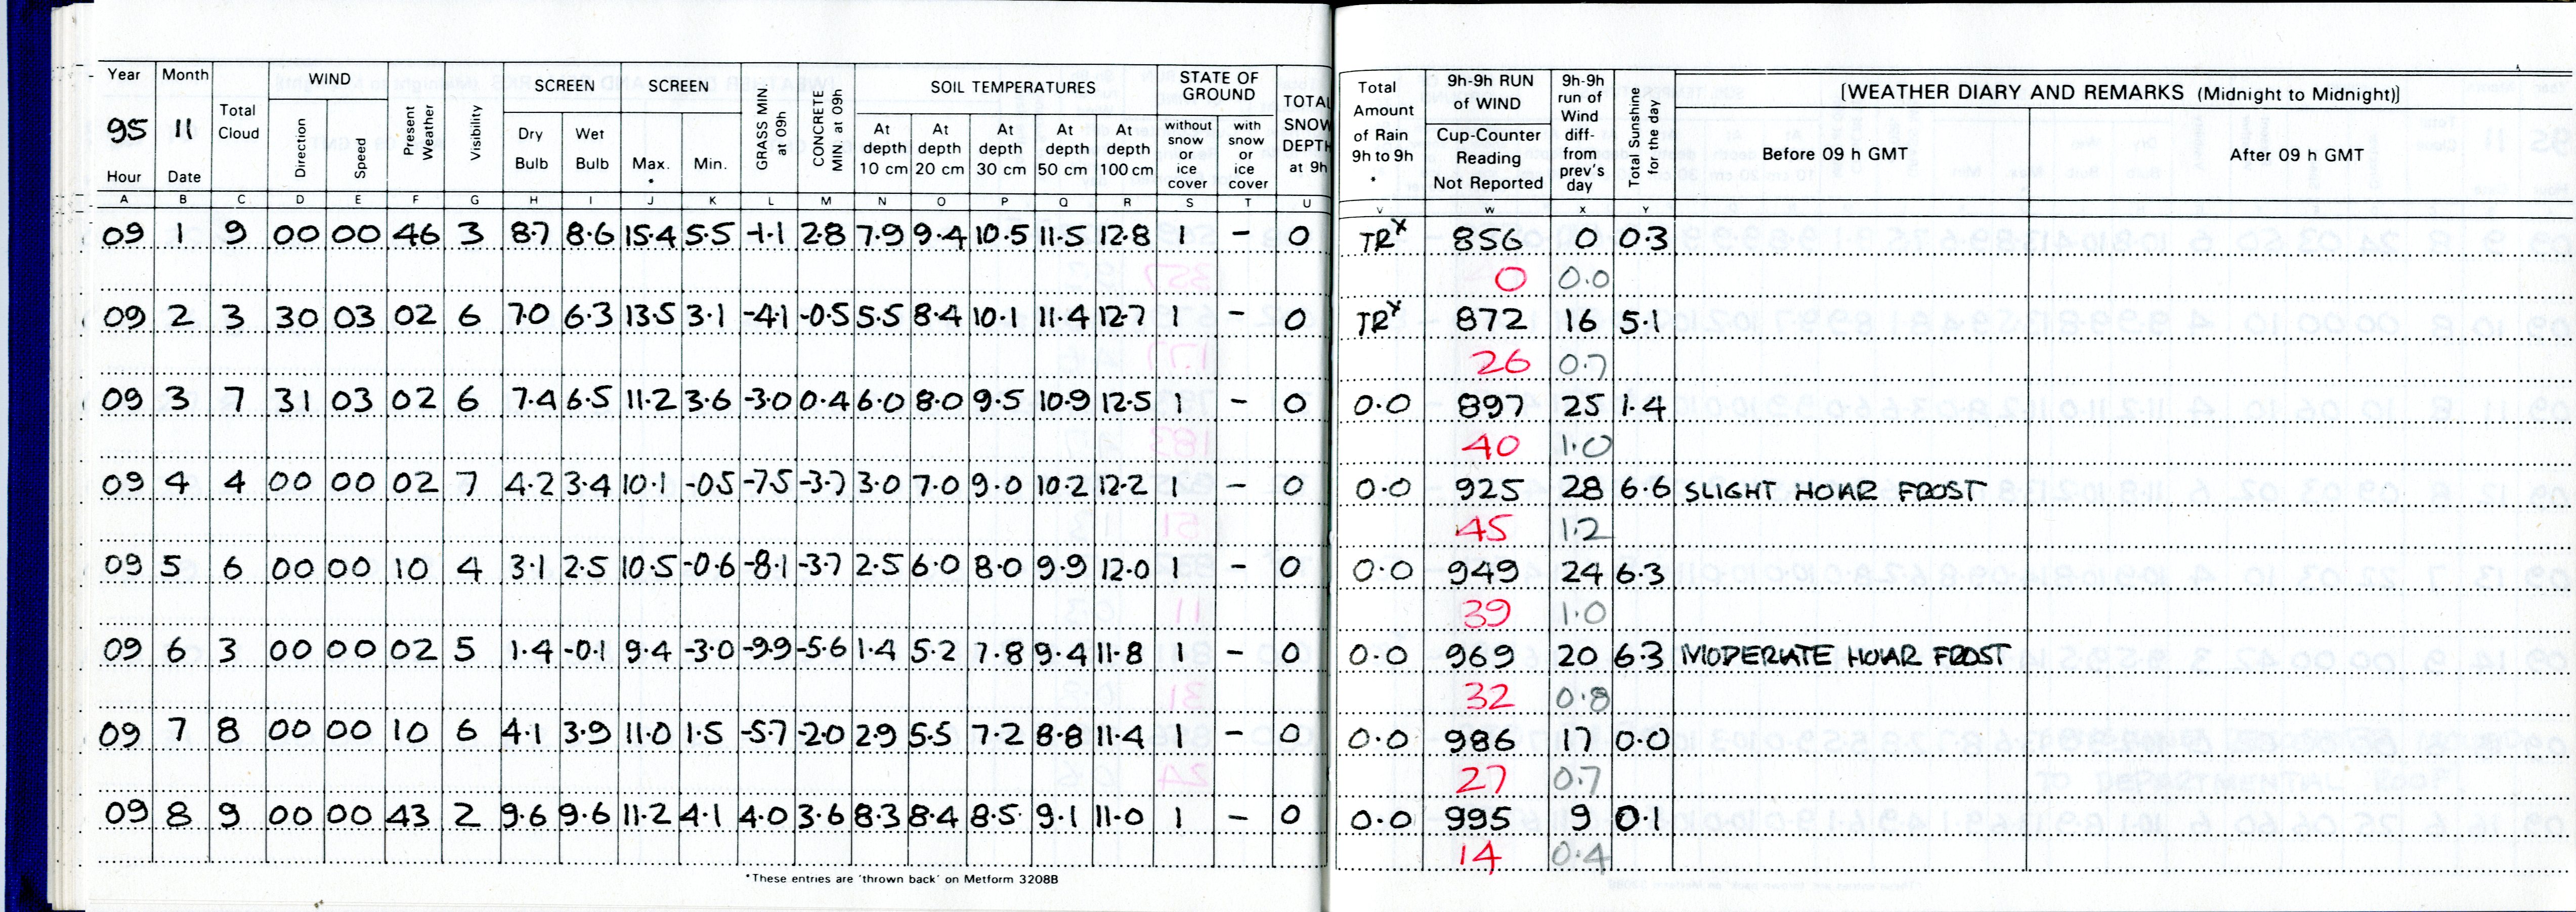 Year Month WIND SCREEN SCREEN SOIL TEMPERATURES STATE OF GROUND
95 11 Total Cloud Direction Speed Present Weather Visibility Dry Bulb Wet Bulb Max. * Min. GRASS MIN. at 09h CONCRETE MIN. at 09h At depth 10 cm At depth 20 cm At depth 30 cm At depth 50 cm At depth 100 cm without snow or ice cover with snow or ice cover TOTAL SNOW DEPTH at 9h
Hour Date
Total Amount of Rain 9h to 9h * 9h-9h RUN of WIND Cup-Counter Reading Not Reported 9h-9h run of Wind diff- from prev's day Total Sunshine for the day [WEATHER DIARY AND REMARKS (Midnight to Midnight)]
Before 09 h GMT After 09 h GMT
A B C D E F G H I J K L M N O P Q R S T U V W X Y
09 1 9 00 00 46 3 8.7 8.6 15.4 5.5 -1.1 2.8 7.9 9.4 10.5 11.5 12.8 1 - 0 TRx 856 0 0.3
0 0.0
09 2 3 30 03 02 6 7.0 6.3 13.5 3.1 -4.1 -0.5 5.5 8.4 10.1 11.4 12.7 1 - 0 TRx 872 16 5.1
26 0.7
09 3 7 31 03 02 6 7.4 6.5 11.2 3.6 -3.0 0.4 6.0 8.0 9.5 10.9 12.5 1 - 0 0.0 897 25 1.4
40 1.0
09 4 4 00 00 02 7 4.2 3.4 10.1 -0.5 -7.5 -3.7 3.0 7.0 9.0 10.2 12.2 1 - 0 0.0 925 28 6.6 SLIGHT HOAR FROST
45 1.2
09 5 6 00 00 10 4 3.1 2.5 10.5 -0.6 -8.1 -3.7 2.5 6.0 8.0 9.9 12.0 1 - 0 0.0 949 24 6.3
39 1.0
09 6 3 00 00 02 5 1.4 -0.1 9.4 -3.0 -9.9 -5.6 1.4 5.2 7.8 9.4 11.8 1 - 0 0.0 969 20 6.3 MODERATE HOAR FROST
32 0.8
09 7 8 00 00 10 6 4.1 3.9 11.0 1.5 -5.7 -2.0 2.9 5.5 7.2 8.8 11.4 1 - 0 0.0 986 17 0.0
27 0.7
09 8 9 00 00 43 2 9.6 9.6 11.2 4.1 4.0 3.6 8.3 8.4 8.5 9.1 11.0 1 - 0 0.0 995 9 0.1
14 0.4
*These entries are 'thrown back' on Metform 3208B